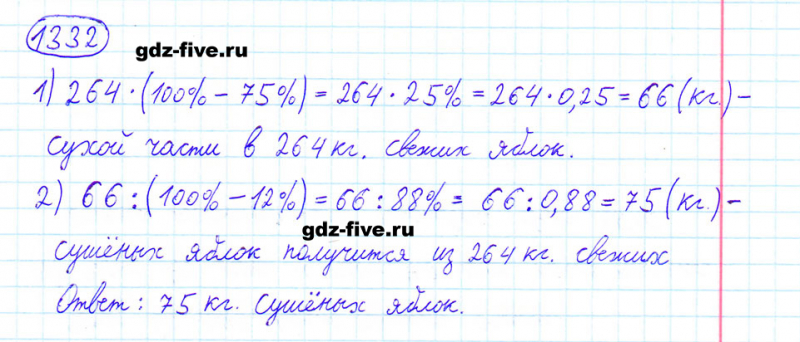 1332
gdz-five.ru
1) 264 · (100% - 75%) = 264 · 25% = 264 · 0,25 = 66 (кг.) -
сухой части в 264 кг. свежих яблок.
2) 66 : (100% - 12%) = 66 : 88% = 66 : 0,88 = 75 (кг.) -
gdz-five.ru
сушёных яблок получится из 264 кг. свежих
Ответ: 75 кг. сушёных яблок.